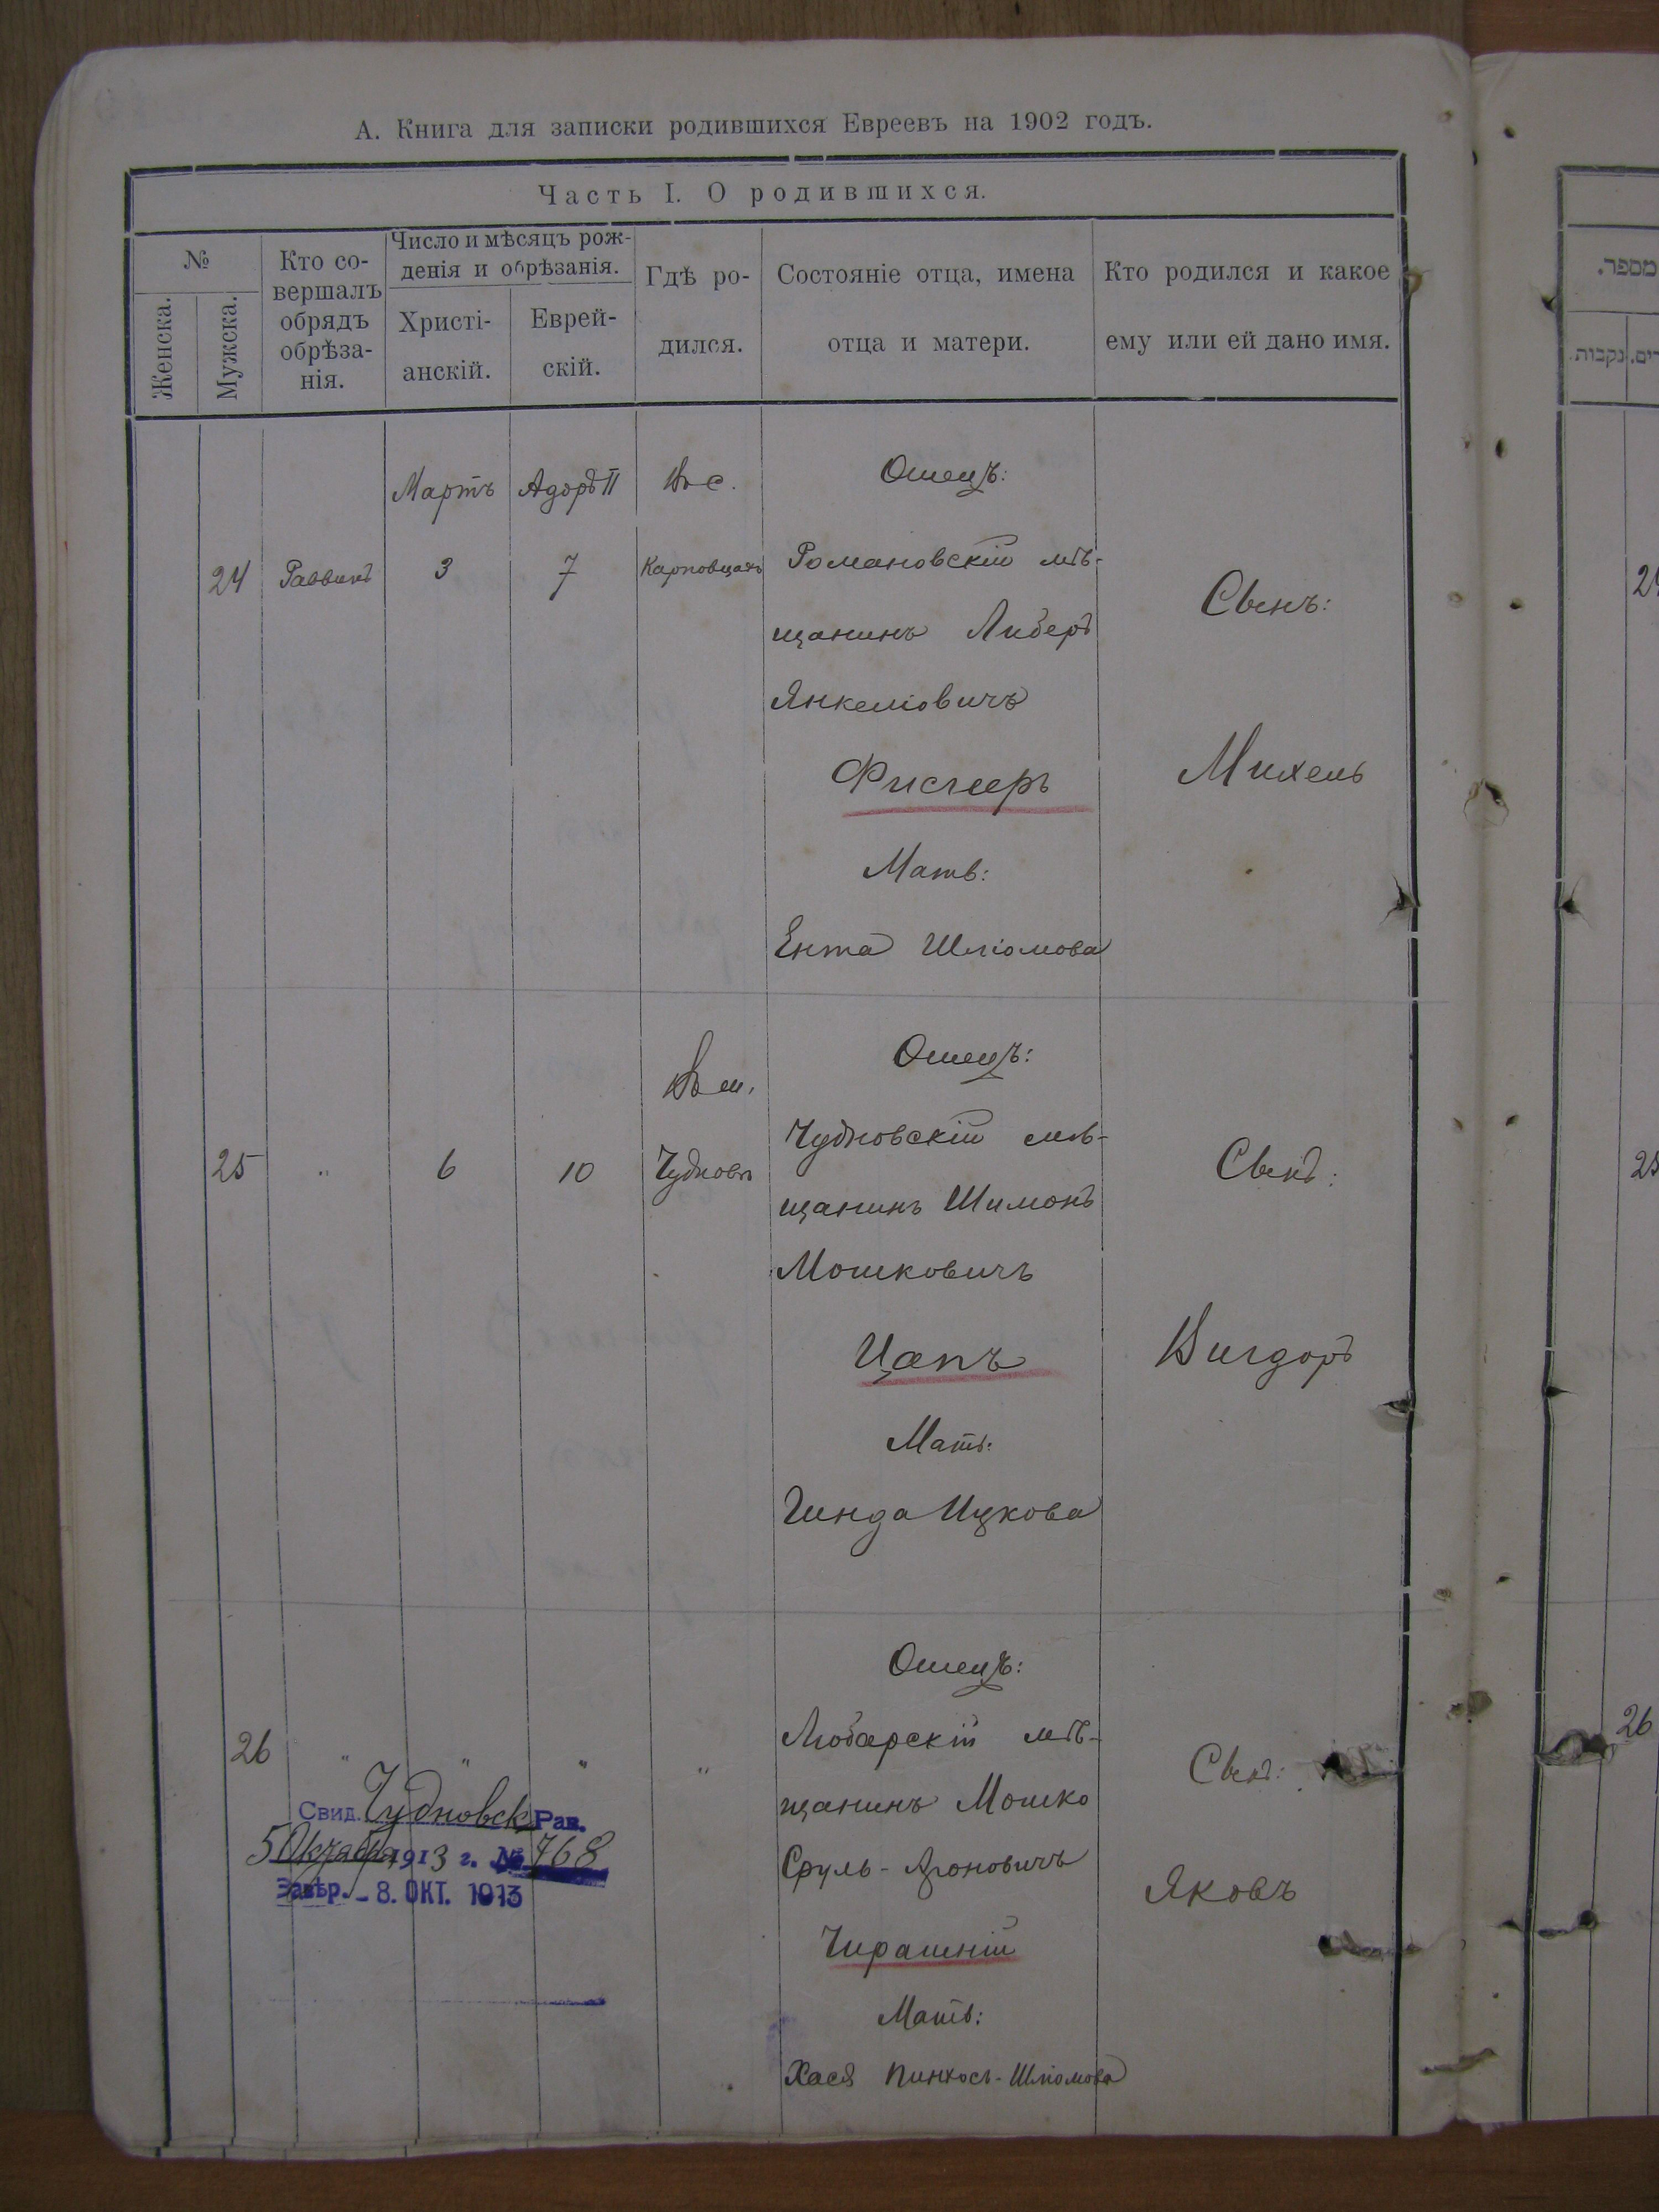 А. Книга для записки родившихся Евреевъ на 1902 годъ.
Часть I. О родившихся.
№
Женска.
Мужска.
Кто со-
вершалъ
обрядъ
обрѣза-
нія.
Число и мѣсяцъ рож-
денія и обрѣзанія.
Христі-
анскій.
Еврей-
скій.
Гдѣ ро-
дился.
Состояніе отца, имена
отца и матери.
Кто родился и какое
ему или ей дано имя.
Мартъ Адоръ II Въ с. Отецъ:
24 Раввинъ 3 7 Карповцахъ Романовскій мѣ-
щанинъ Либеръ
Янкеліовичъ
Фишеръ
Мать:
Ента Шліомова
Сынъ:
Михель
Въ м. Отецъ:
25 " 6 10 Чудновѣ Чудновскій мѣ-
щанинъ Шимонъ
Мошковичъ
Цапъ
Мать:
Гинда Ицкова
Сынъ:
Вигдоръ
Отецъ:
26 " " " " Любарскій мѣ-
щанинъ Мошко
Сруль-Ароновичъ
Мать:
Хася Пинхось-Шліомова
Сынъ:
Яковъ
Свид. Чудновск Рав.
5 Октября 1913 г. № 768
Завѣр. - 8. ОКТ. 1913
מספר.
נקבות
24
25
26